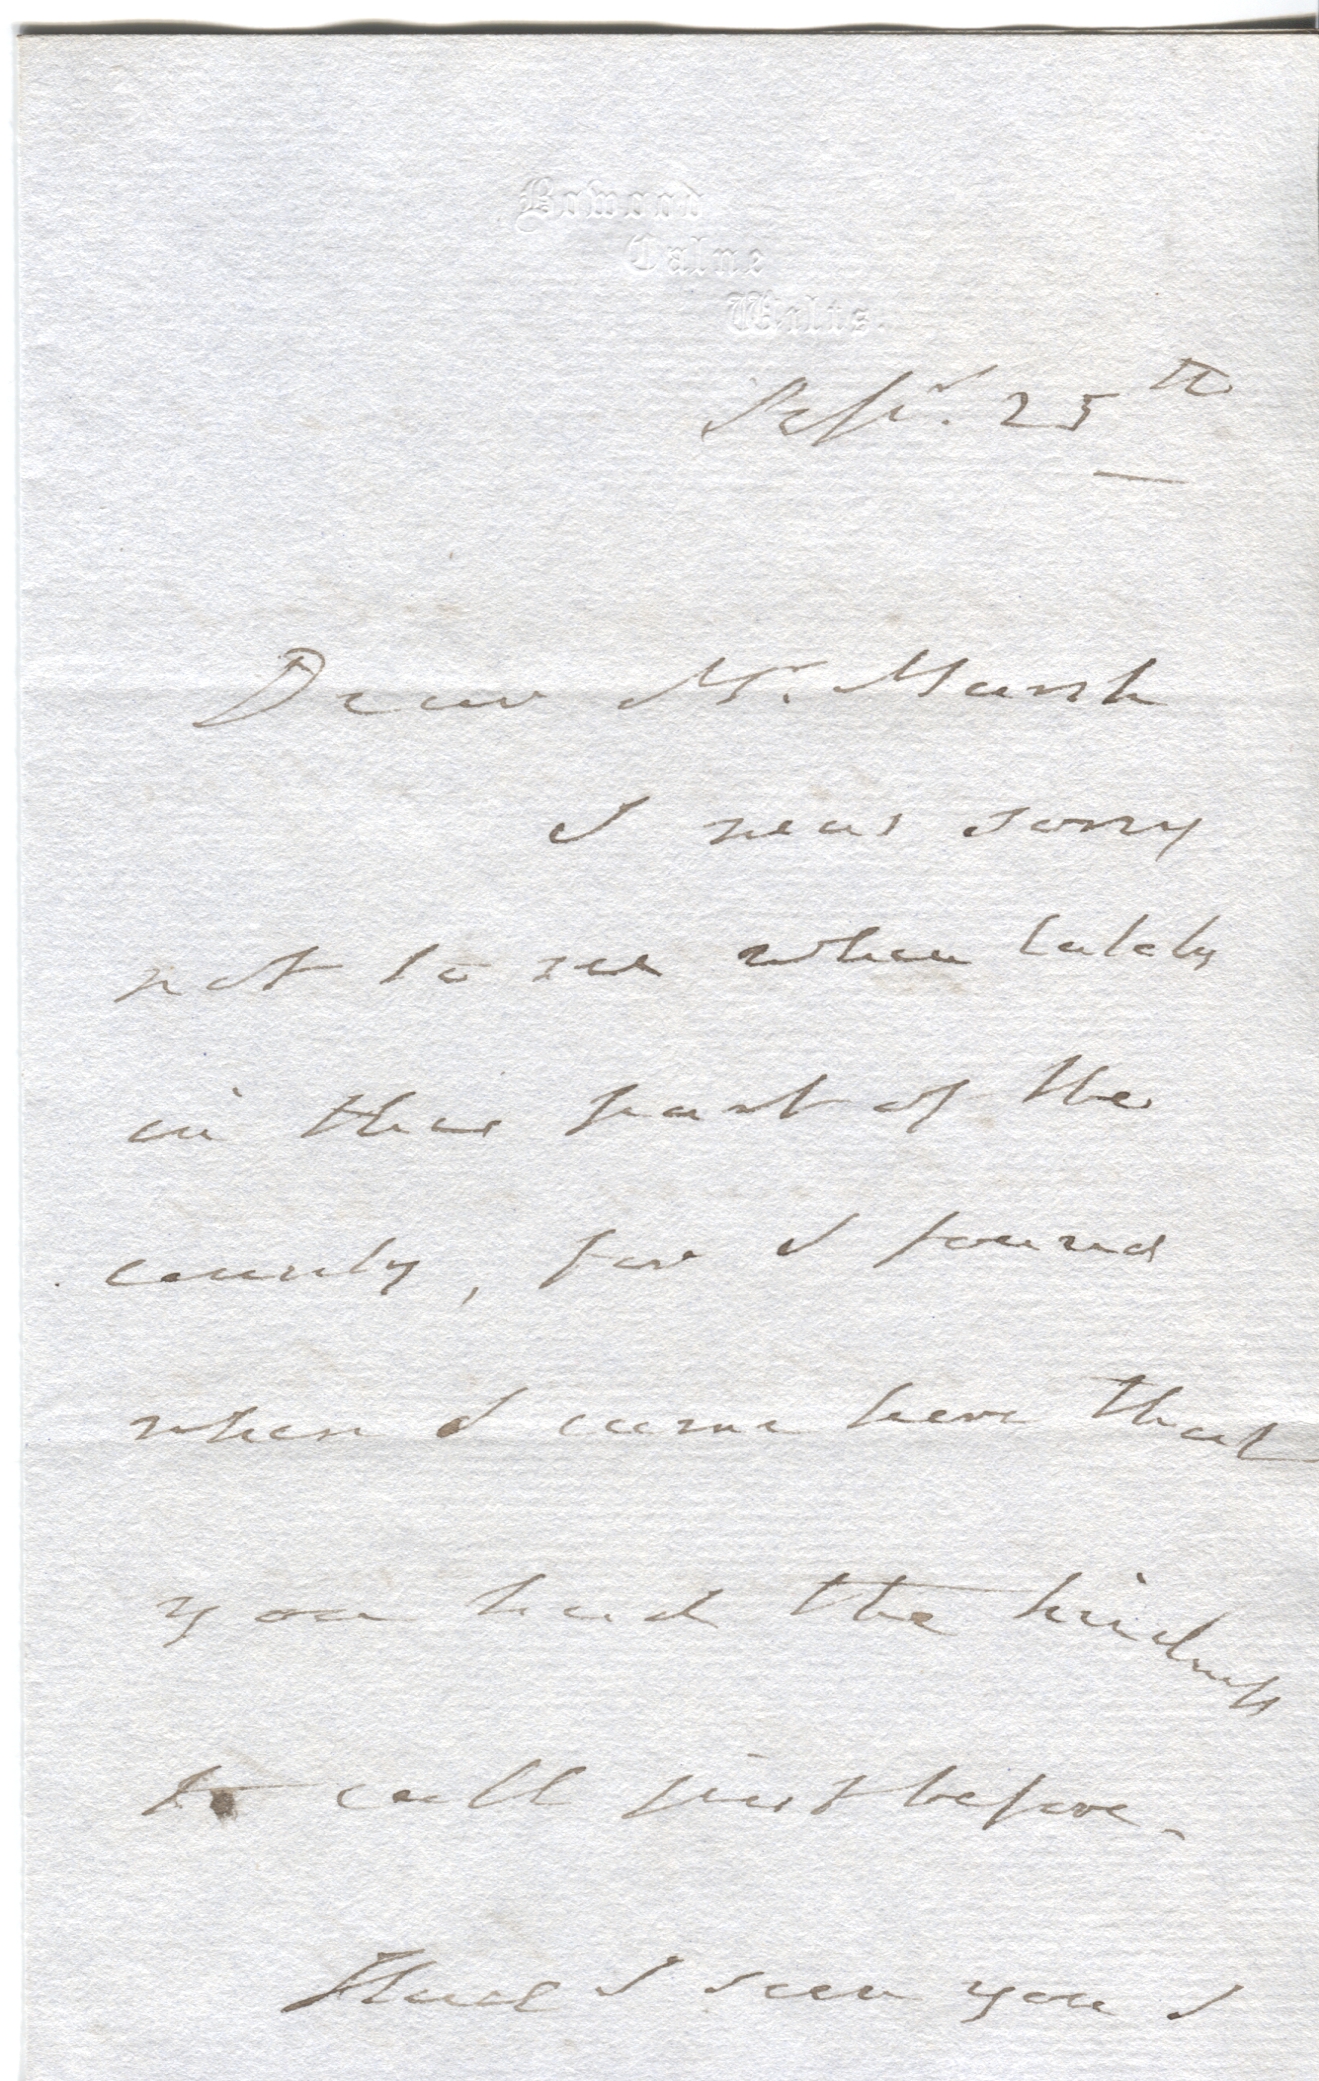 Bowood
Calne
Wilts.
Sept. 25th
Dear Mr. Marsh
I was sorry
not to see when lately
in this part of the
county, for I found
when I came here that
you had the kindness
to call just before.
Had I seen you I